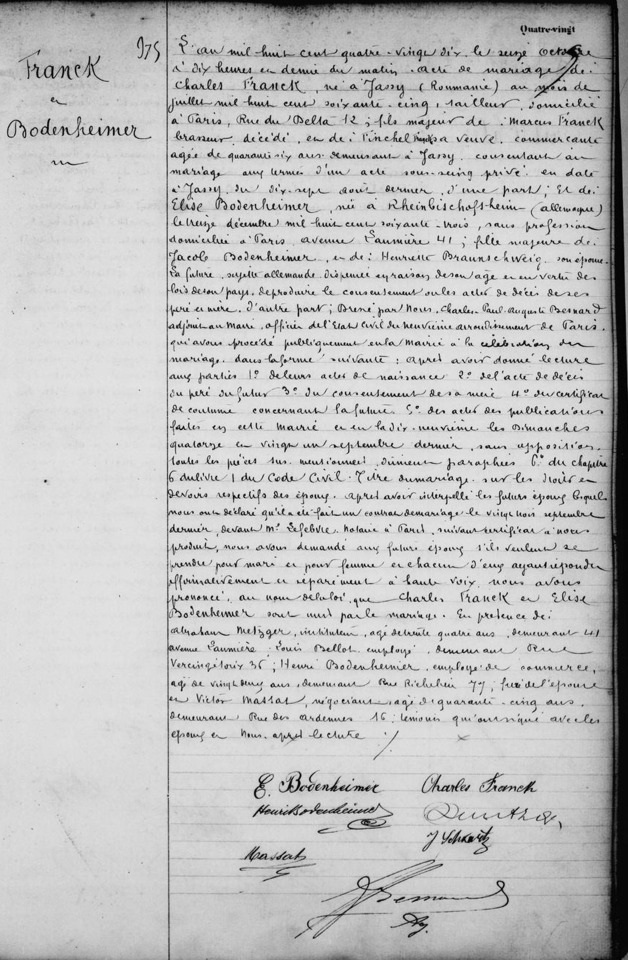 Quatre-vingt
975
Franck
et
Bodenheimer
L'an mil huit cent quatre-vingt dix, le seize octobre
à dix heures et demie du matin. acte de mariage de:
Charles Franck, né à Jassy (Roumanie) au mois de
juillet mil huit cent soixante-cinq, tailleur, domicilié
à Paris, Rue du Delta 12; fils majeur de: Marcus Franck
brasseur décédé, et de: Finchel sa veuve, commerçante
agée de quarante six ans demeurant à Jassy, consentant au
mariage aux termes d'un acte sous-seing privé en date
à Jassy du dix-sept août dernier, d'une part; Et de:
Elise Bodenheimer, née à Rheinbischofsheim (allemagne)
le treize décembre mil huit cent soixante-trois, sans profession
domiciliée à Paris avenue Laumière 41; fille majeure de:
Jacob Bodenheimer, et de: Henriette Braunschweig, son épouse
La future, sujette allemande dispensée en raison de son age et en vertu des
lois de son pays, de produire le consentement ou les actes de décès de ses
père et mère, d'autre part; Dressé par Nous, Charles-Paul-Auguste Besnard
adjoint au Maire, officier de l'Etat Civil du neuvième arrondissement de Paris,
qui avons procédé publiquement en la mairie à la célébration du
mariage dans la forme suivante: après avoir donné lecture
aux parties 1° de leurs actes de naissance 2° de l'acte de décès
du père du futur 3° du consentement de sa mère 4° du certificat
de coutume concernant la future 5° des actes des publications
faites en cette Mairie et en la dix-neuvième les Dimanches
quatorze et vingt un septembre dernier, sans opposition,
toutes les pièces sus mentionnées dûment paraphées 6° du chapitre
6 du livre 1 du Code Civil. Titre du mariage sur les droits et
devoirs respectifs des époux. après avoir interpellé les futurs époux lesquels
nous ont déclaré qu'il a été fait un contrat de mariage le vingt trois septembre
dernier, devant Me Lefebvre Notaire à Paris, suivant certificat à nous
produit, nous avons demandé aux futurs époux s'ils veulent se
prendre pour mari et pour femme et chacun d'eux ayant répondu
affirmativement et séparément à haute voix, nous avons
prononcé, au nom de la loi, que Charles Franck et Elise
Bodenheimer sont unis par le mariage. En présence de:
Abraham Metzger, instituteur, agé de trente quatre ans, demeurant 41
avenue Laumière; Louis Bellot employé, demeurant Rue
Vercingétorix 36; Henri Bodenheimer, employé de commerce,
agé de vingt deux ans, demeurant Rue Richelieu 77; frère de l'épouse
et Victor Massat, négociant agé de quarante-cinq ans,
demeurant Rue des ardennes 16; témoins qui ont signé avec les
époux et Nous après lecture ./.
E. Bodenheimer Charles Franck
Henri Bodenheimer
J Schwartz
Massat